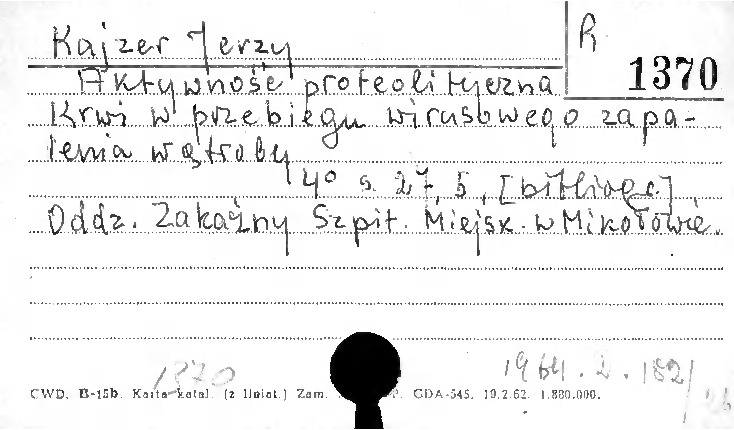 Kajzer Jerzy
R
1370
Aktywność proteolityczna
Krwi w przebiegu wirusowego zapa-
lenia wątroby
4° s. 27, 5, [bibliogr.]
Oddz. Zakaźny Szpit. Miejsk. w Mikołowie.
1370
1964.2.182/
CWD. B-15b. Karta katal. (z liniat.) Zam. GDA-545. 19.2.62. 1.880.000.